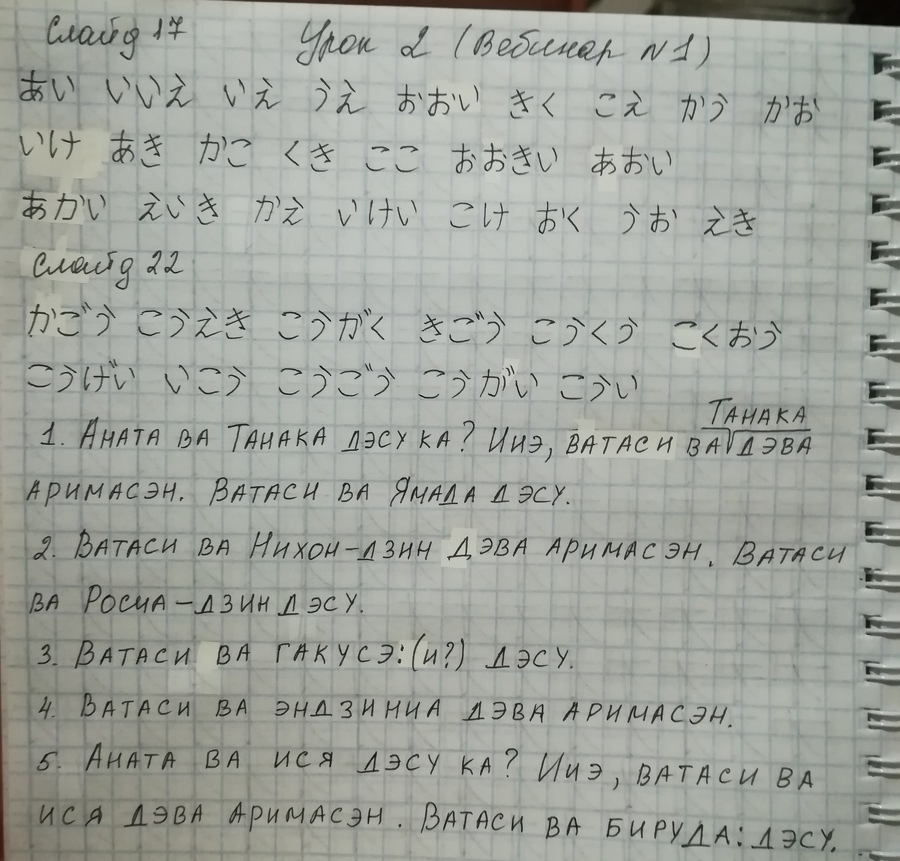 Слайд 17 Урок 2 (Вебинар N1)
あい いいえ いえ うえ おおい きく こえ かう かお
いけ あき かこ くき ここ おおきい あおい
あかい えいき かえ いけい こけ おく うお えき
Слайд 22
かごう こうえき こうがく きごう こうくう こくおう
こうげい いこう こうごう こうがい こうい
1. Аната ва Танака дэсу ка? Ииэ, ватаси ва Танака дэва
аримасэн. Ватаси ва Ямада дэсу.
2. Ватаси ва Нихон-дзин дэва аримасэн. Ватаси
ва Росиа-дзин дэсу.
3. Ватаси ва гакусэ:(и?) дэсу.
4. Ватаси ва эндзиниа дэва аримасэн.
5. Аната ва ися дэсу ка? Ииэ, ватаси ва
ися дэва аримасэн. Ватаси ва бируда: дэсу.